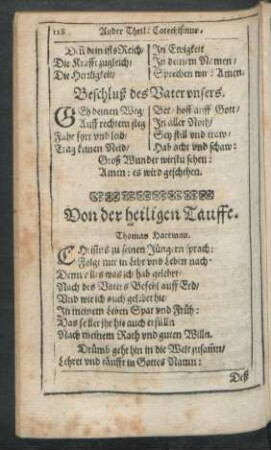 128 Ander Theil: Catechismus.
Dañ dein ists Reich/ In Ewigkeit
Die Krafft zugleich/ In deinem Namen/
Die Herzligkeit/ Sprechen wir: Amen.
Beschluß des Vater vnsers.
GEh deinen Weg/ Bet/ hoff auff Gott/
Auff rechtem steg In aller Noth/
Fahr fort vnd leid/ Sey still vnd traw/
Trag keinen Neid/ Hab acht vnd schaw:
Groß Wunder wirstu sehen:
Amen: es wird geschehen.
Von der heiligen Tauffe.
Thomas Hartman.
CHristus zu seinen Jüngern sprach:
Folgt mir in Lehr vnd Leben nach
Denn alles was ich hab gelehrt
Nach des Vaters Befehl auff Erd/
Vnd wie ich auch gelebet hie
In meinem Leben Spat vnd Früh:
Das sollet ihr his auch erfülln
Nach meinem Rath vnd guten Willn.
Drümb geht hin in die Welt zusam̃/
Lehret vnd täufft in Gottes Namn:
Deß